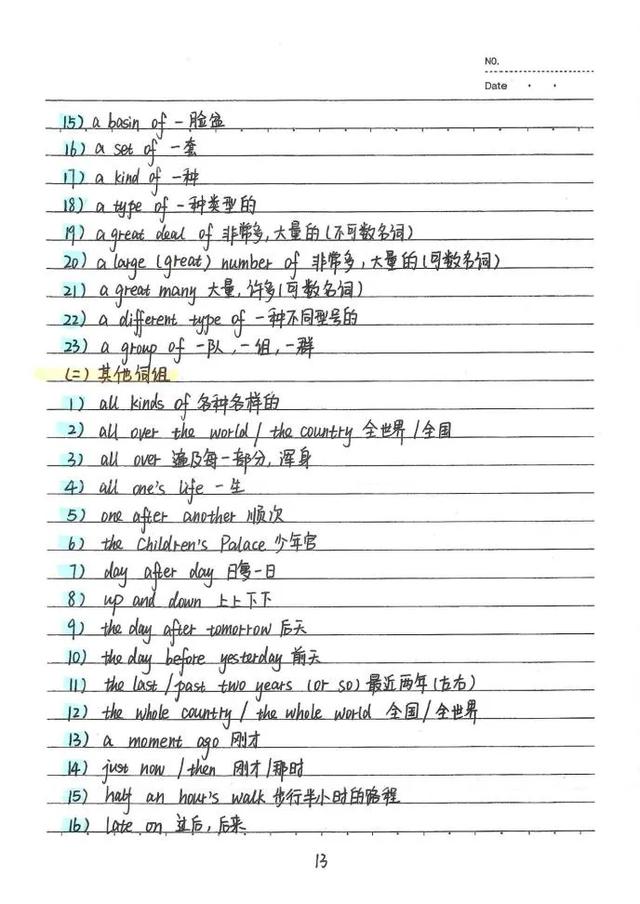 NO.
Date
15) a basin of 一脸盆
16) a set of 一套
17) a kind of 一种
18) a type of 一种类型的
19) a great deal of 非常多,大量的(不可数名词)
20) a large (great) number of 非常多,大量的(可数名词)
21) a great many 大量,许多(可数名词)
22) a different type of 一种不同型号的
23) a group of 一队,一组,一群
(二) 其他词组
1) all kinds of 各种各样的
2) all over the world / the country 全世界/全国
3) all over 遍及每一部分,浑身
4) all one's life 一生
5) one after another 顺次
6) the Children's Palace 少年宫
7) day after day 日复一日
8) up and down 上上下下
9) the day after tomorrow 后天
10) the day before yesterday 前天
11) the last / past two years (or so) 最近两年(左右)
12) the whole country / the whole world 全国/全世界
13) a moment ago 刚才
14) just now / then 刚才/那时
15) half an hour's walk 步行半小时的路程
16) late on 过后,后来
13